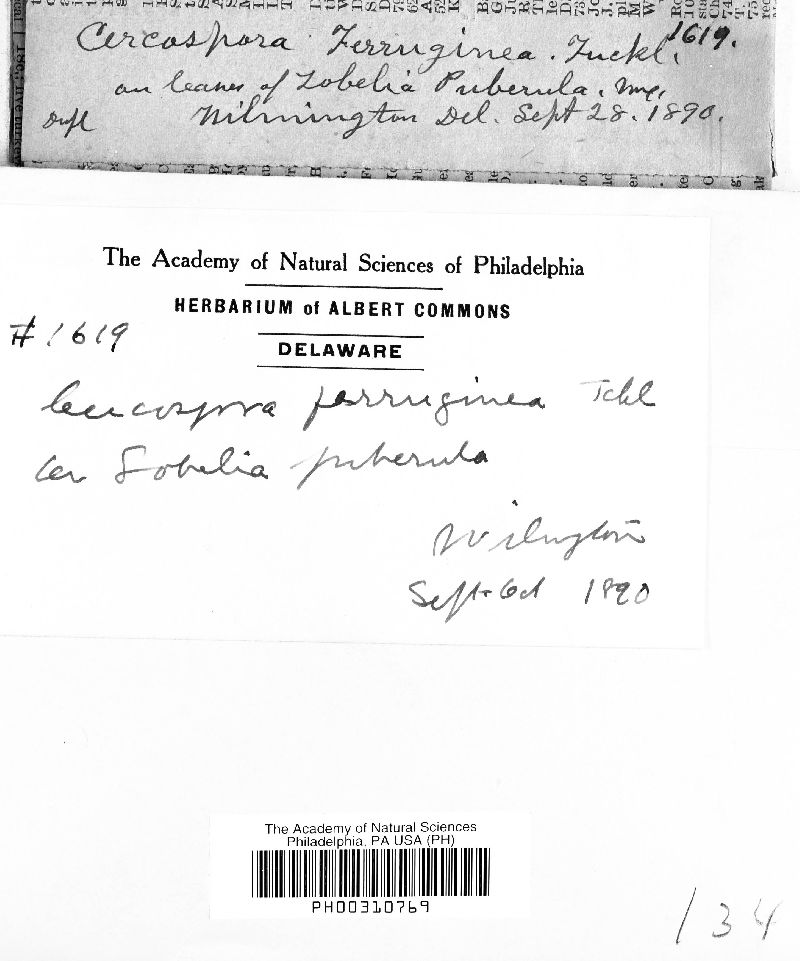 1619.
Cercospora Ferruginea. Fuckl.
on leaves of Lobelia Puberula. Mx.
Dupl Wilmington Del. Sept 28. 1890.
The Academy of Natural Sciences of Philadelphia
HERBARIUM of ALBERT COMMONS
#1619
DELAWARE
Cercospora ferruginea Fckl
on Lobelia puberula
Wilmington
Sept-Oct 1890
The Academy of Natural Sciences
Philadelphia, PA USA (PH)
PH00310769
134